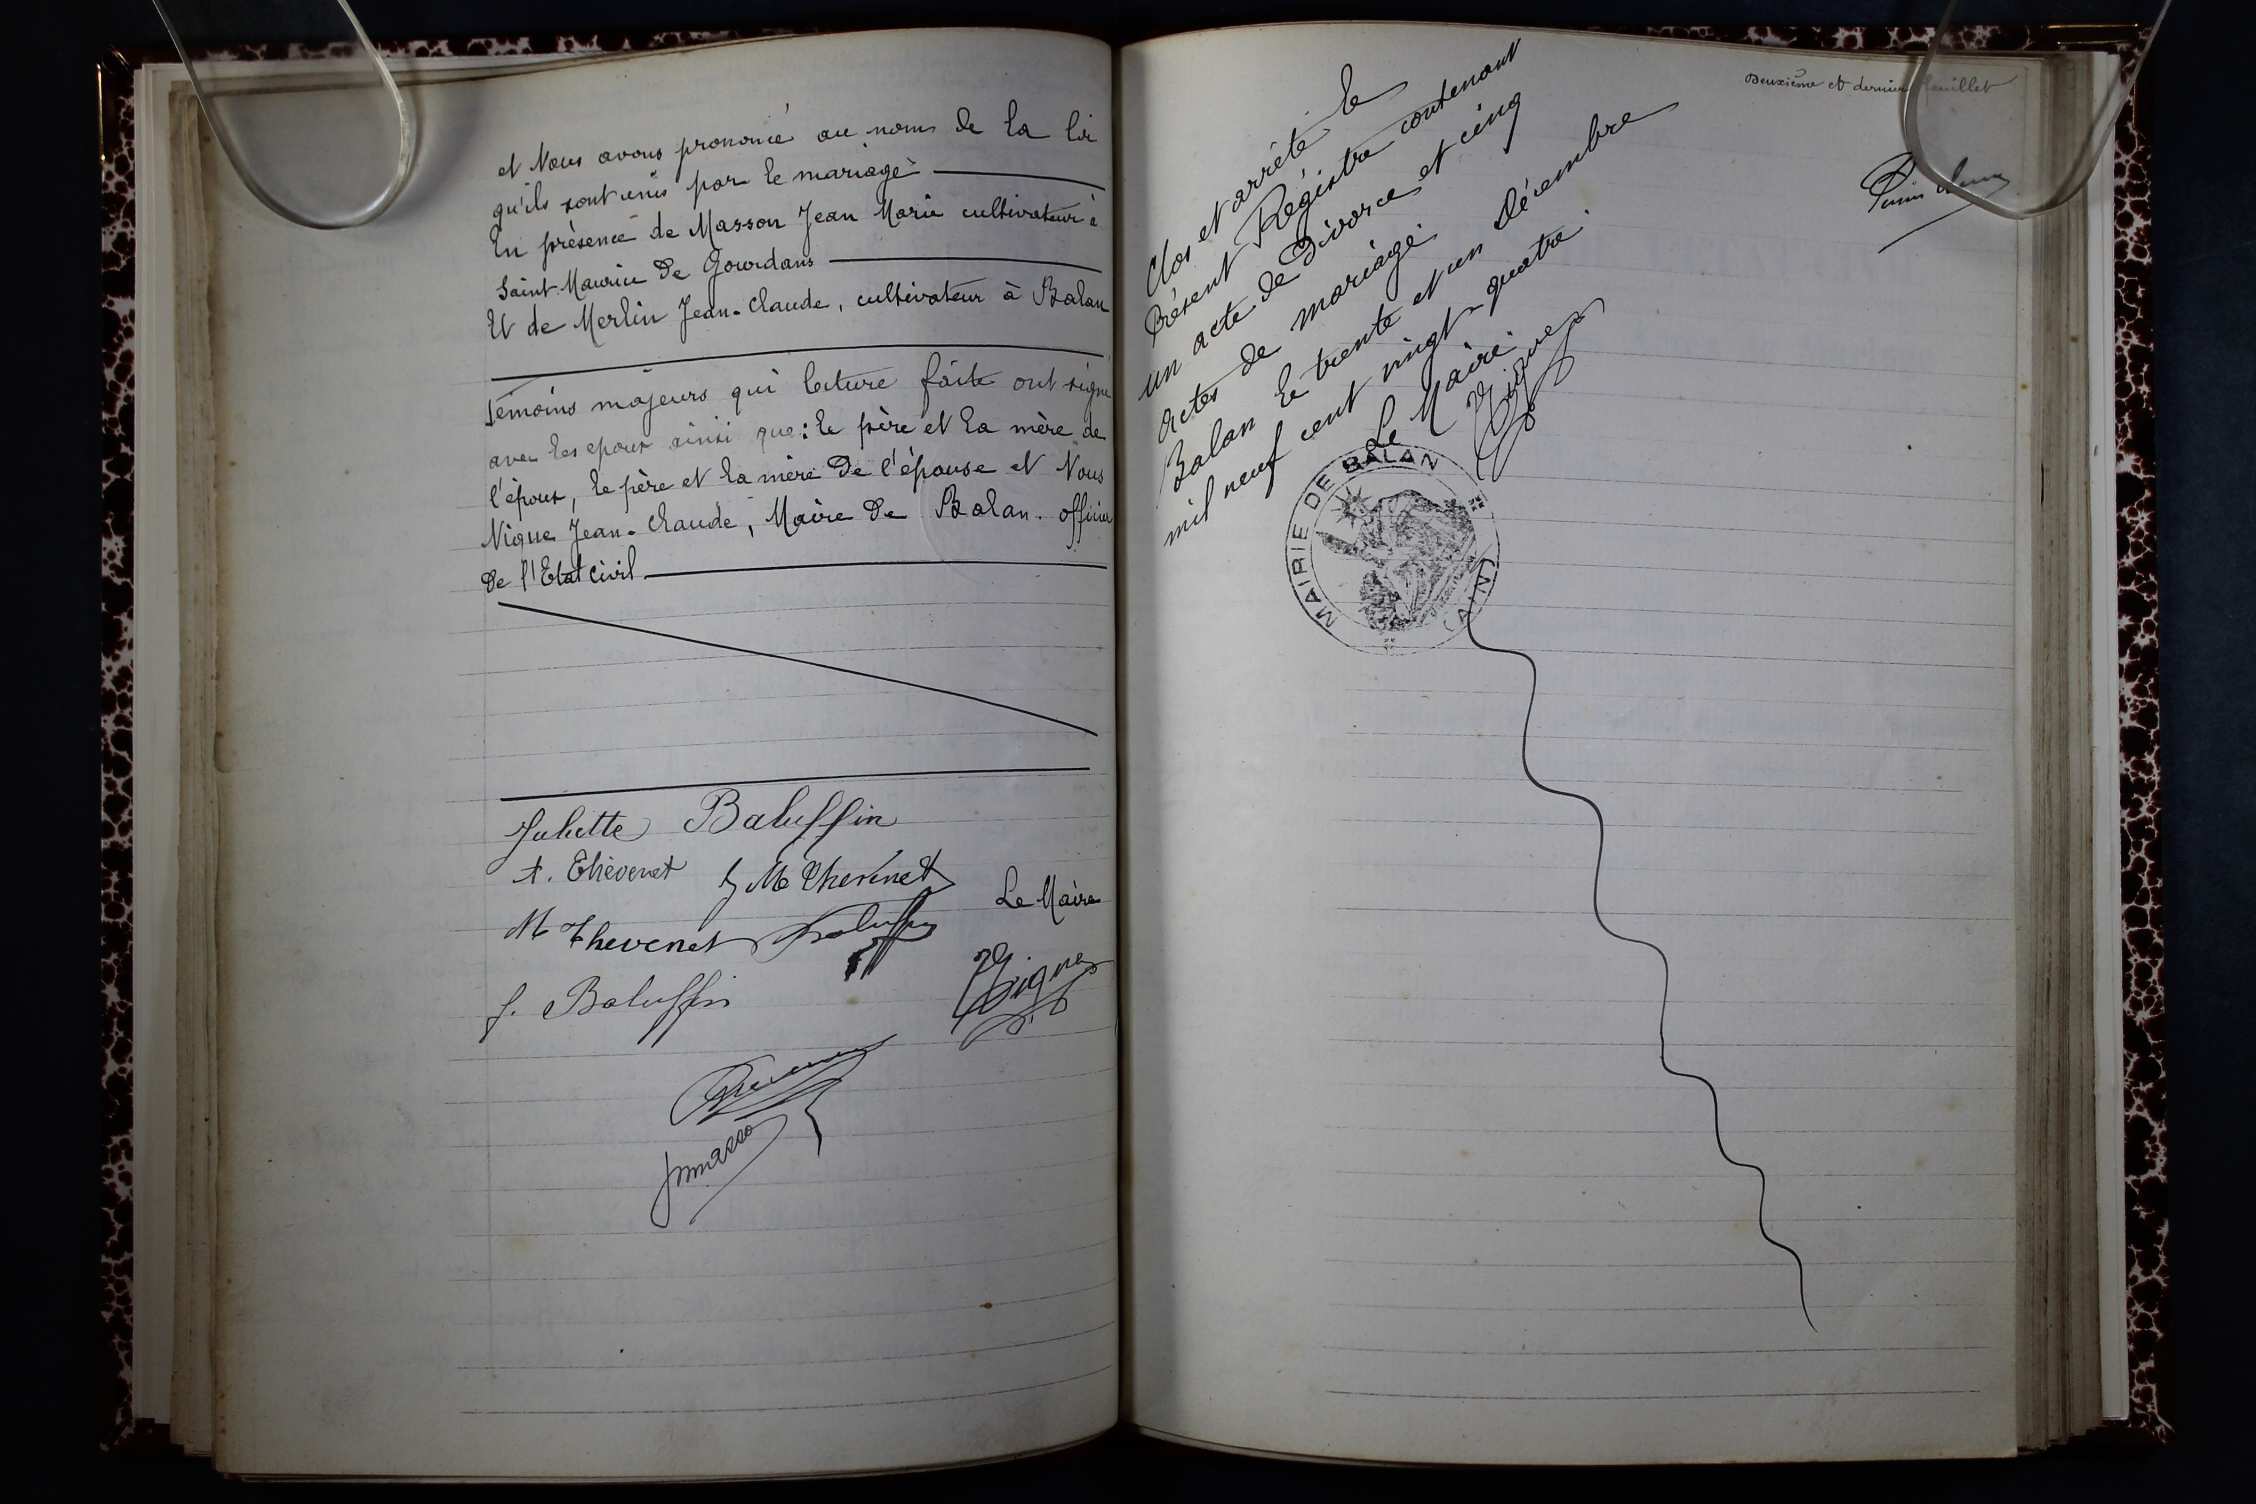 et Nous avons prononcé au nom de la loi
qu'ils sont unis par le mariage
En présence de Masson Jean Marie cultivateur à
Saint Maurice de Gourdans
Et de Merlin Jean-Claude, cultivateur à Balan
témoins majeurs qui lecture faite ont signé
avec les époux ainsi que: le père et la mère de
l'époux, le père et la mère de l'épouse et Nous
Nique Jean-Claude, Maire de Balan. officier
de l'Etat civil
Juliette Baluffin
A. Thévenet J M Thevenet
M Thevenet Baluffin
Le Maire
J. Baluffin
Nique
Jmmasso
Deuxième et dernier feuillet
Clos et arrêté le
Présent Régistre contenant
un acte de Divorce et cinq
actes de mariage.
Balan le trente et un décembre
mil neuf cent vingt-quatre.
Le Maire
Nique
MAIRIE DE BALAN
(AIN)